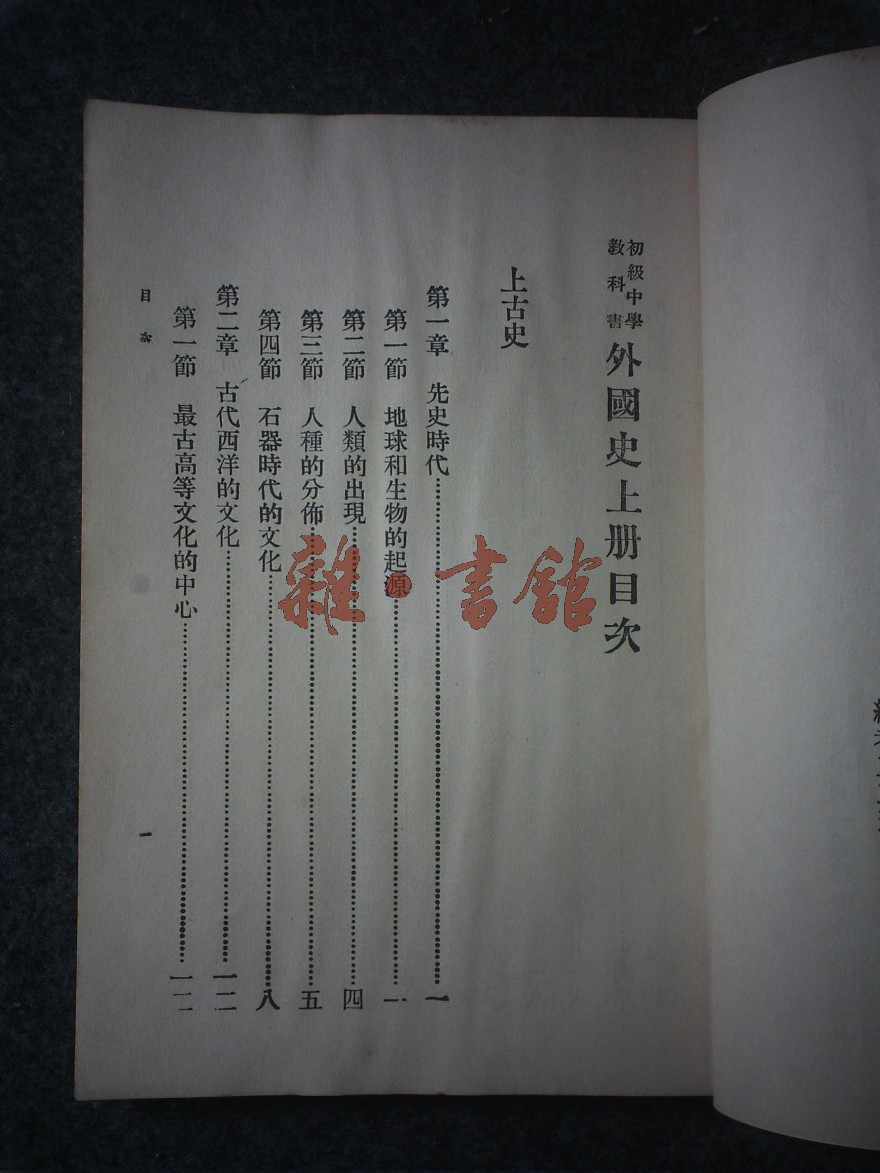 初級中學
教科書
外國史上册目次
上古史
第一章 先史時代…………一
第一節 地球和生物的起源…………一
第二節 人類的出現…………四
第三節 人種的分佈…………五
第四節 石器時代的文化…………八
第二章 古代西洋的文化…………一二
第一節 最古高等文化的中心…………一二
目次
一
雜書館